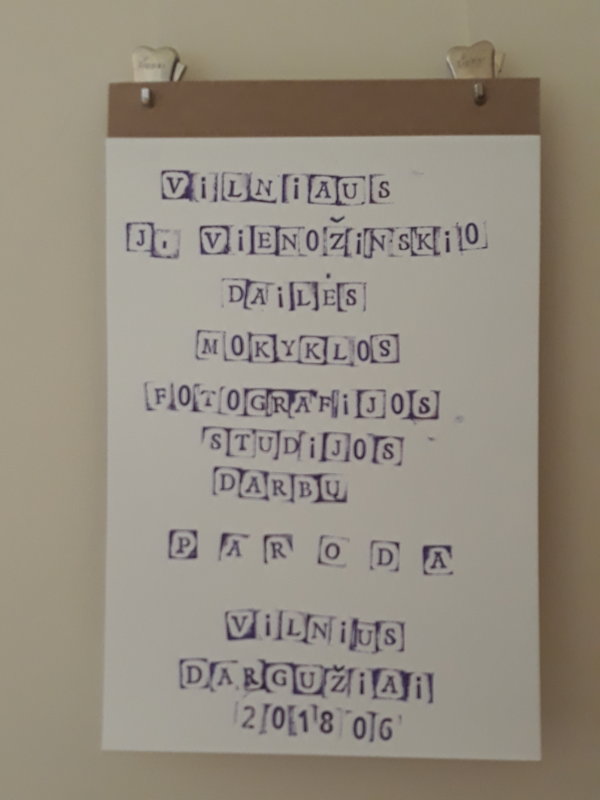 ViLNiAUS
J. ViENOŽiNSKiO
DAiLĖS
MOKYKLOS
FOTOGRAFiJOS
STUDiJOS
DARBŲ
PARODA
ViLNiUS
DARGUŽiAi
2018 06